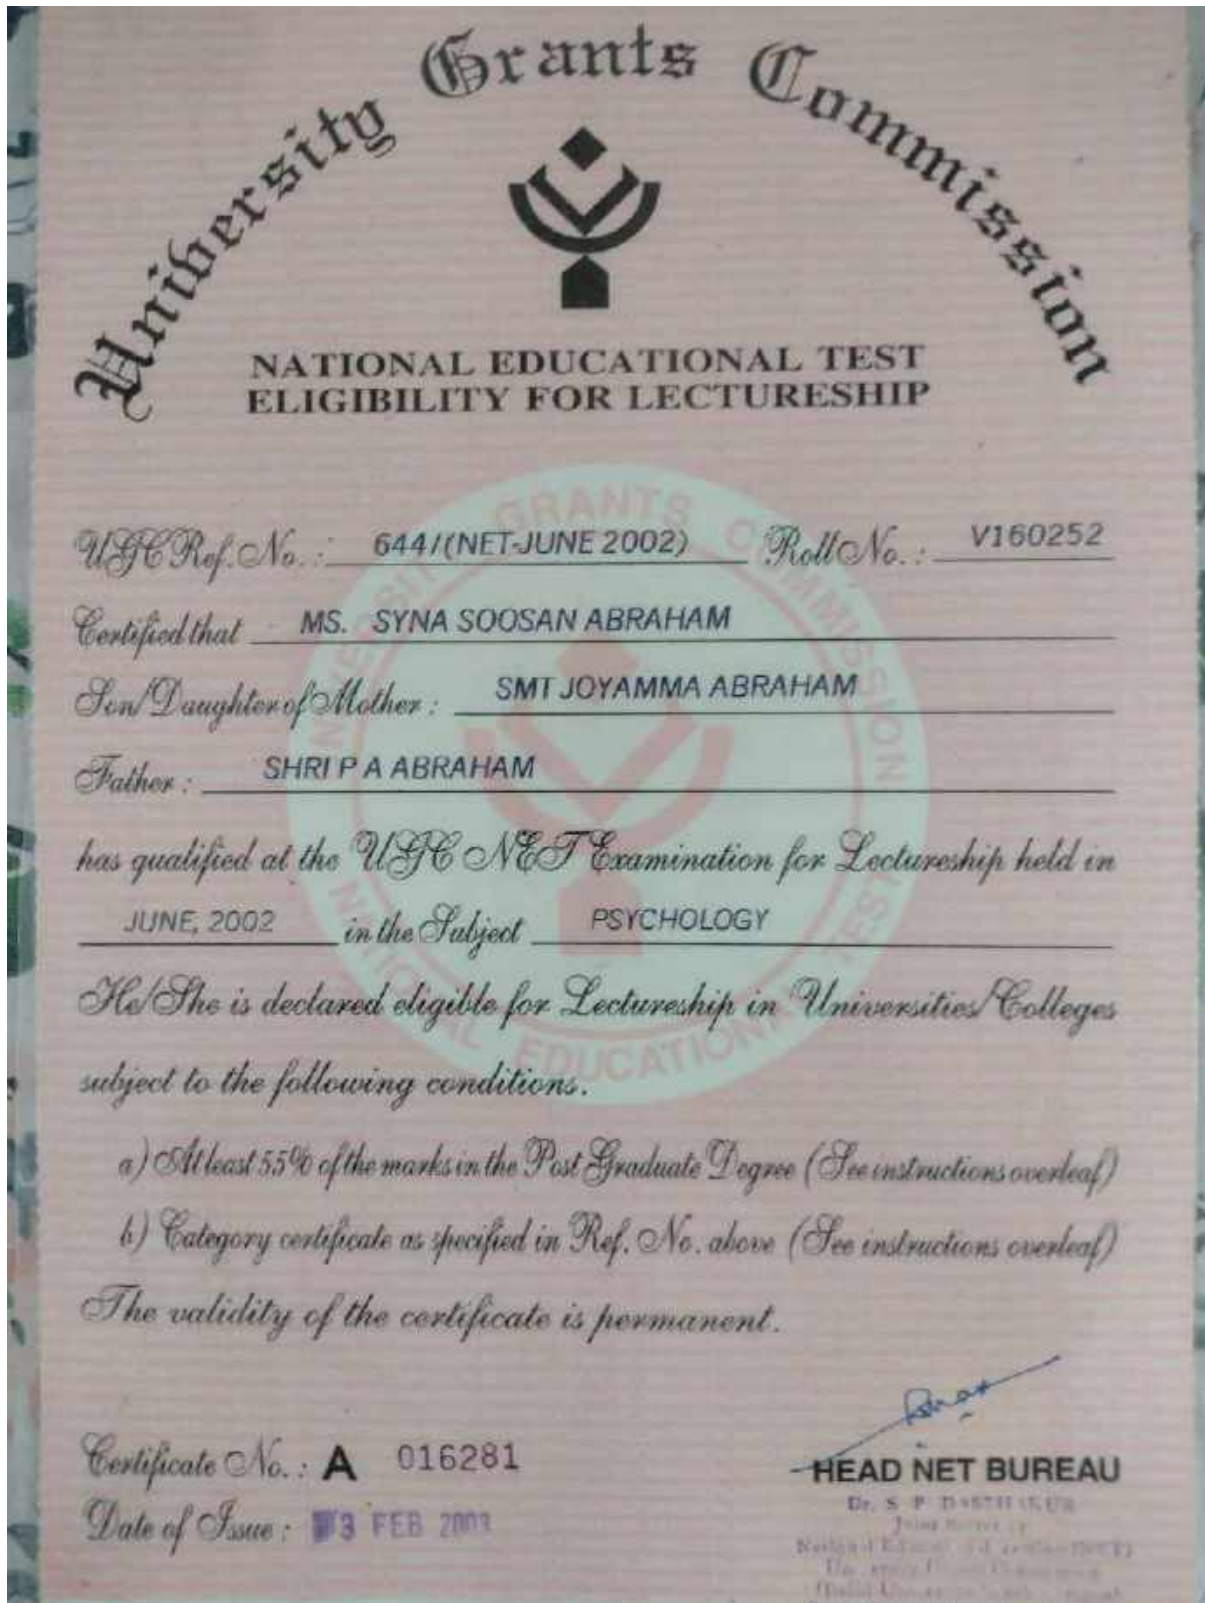 University Grants Commission
NATIONAL EDUCATIONAL TEST
ELIGIBILITY FOR LECTURESHIP
UNIVERSITY GRANTS COMMISSION
NATIONAL EDUCATIONAL TEST
UGC Ref. No. : 644/(NET-JUNE 2002) Roll No. : V160252
Certified that MS. SYNA SOOSAN ABRAHAM
Son/Daughter of Mother : SMT JOYAMMA ABRAHAM
Father : SHRI P A ABRAHAM
has qualified at the UGC NET Examination for Lectureship held in
JUNE, 2002 in the Subject PSYCHOLOGY
He/She is declared eligible for Lectureship in Universities/Colleges
subject to the following conditions.
a) At least 55% of the marks in the Post Graduate Degree (See instructions overleaf)
b) Category certificate as specified in Ref. No. above (See instructions overleaf)
The validity of the certificate is permanent.
Certificate No. : A 016281
HEAD NET BUREAU
Date of Issue : 3 FEB 2003
Dr. S P